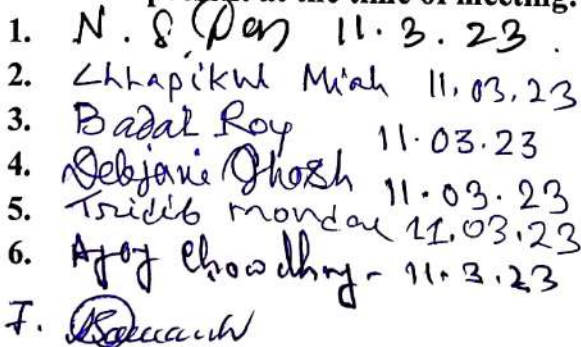 at the time of meeting.
1. N. S. Das 11.3.23.
2. Chhapikul Miah 11.03.23
3. Badal Roy 11.03.23
4. Debjani Ghosh 11.03.23
5. Tridib mondal 11.03.23
6. Ajoy Chowdhry - 11.3.23
7.